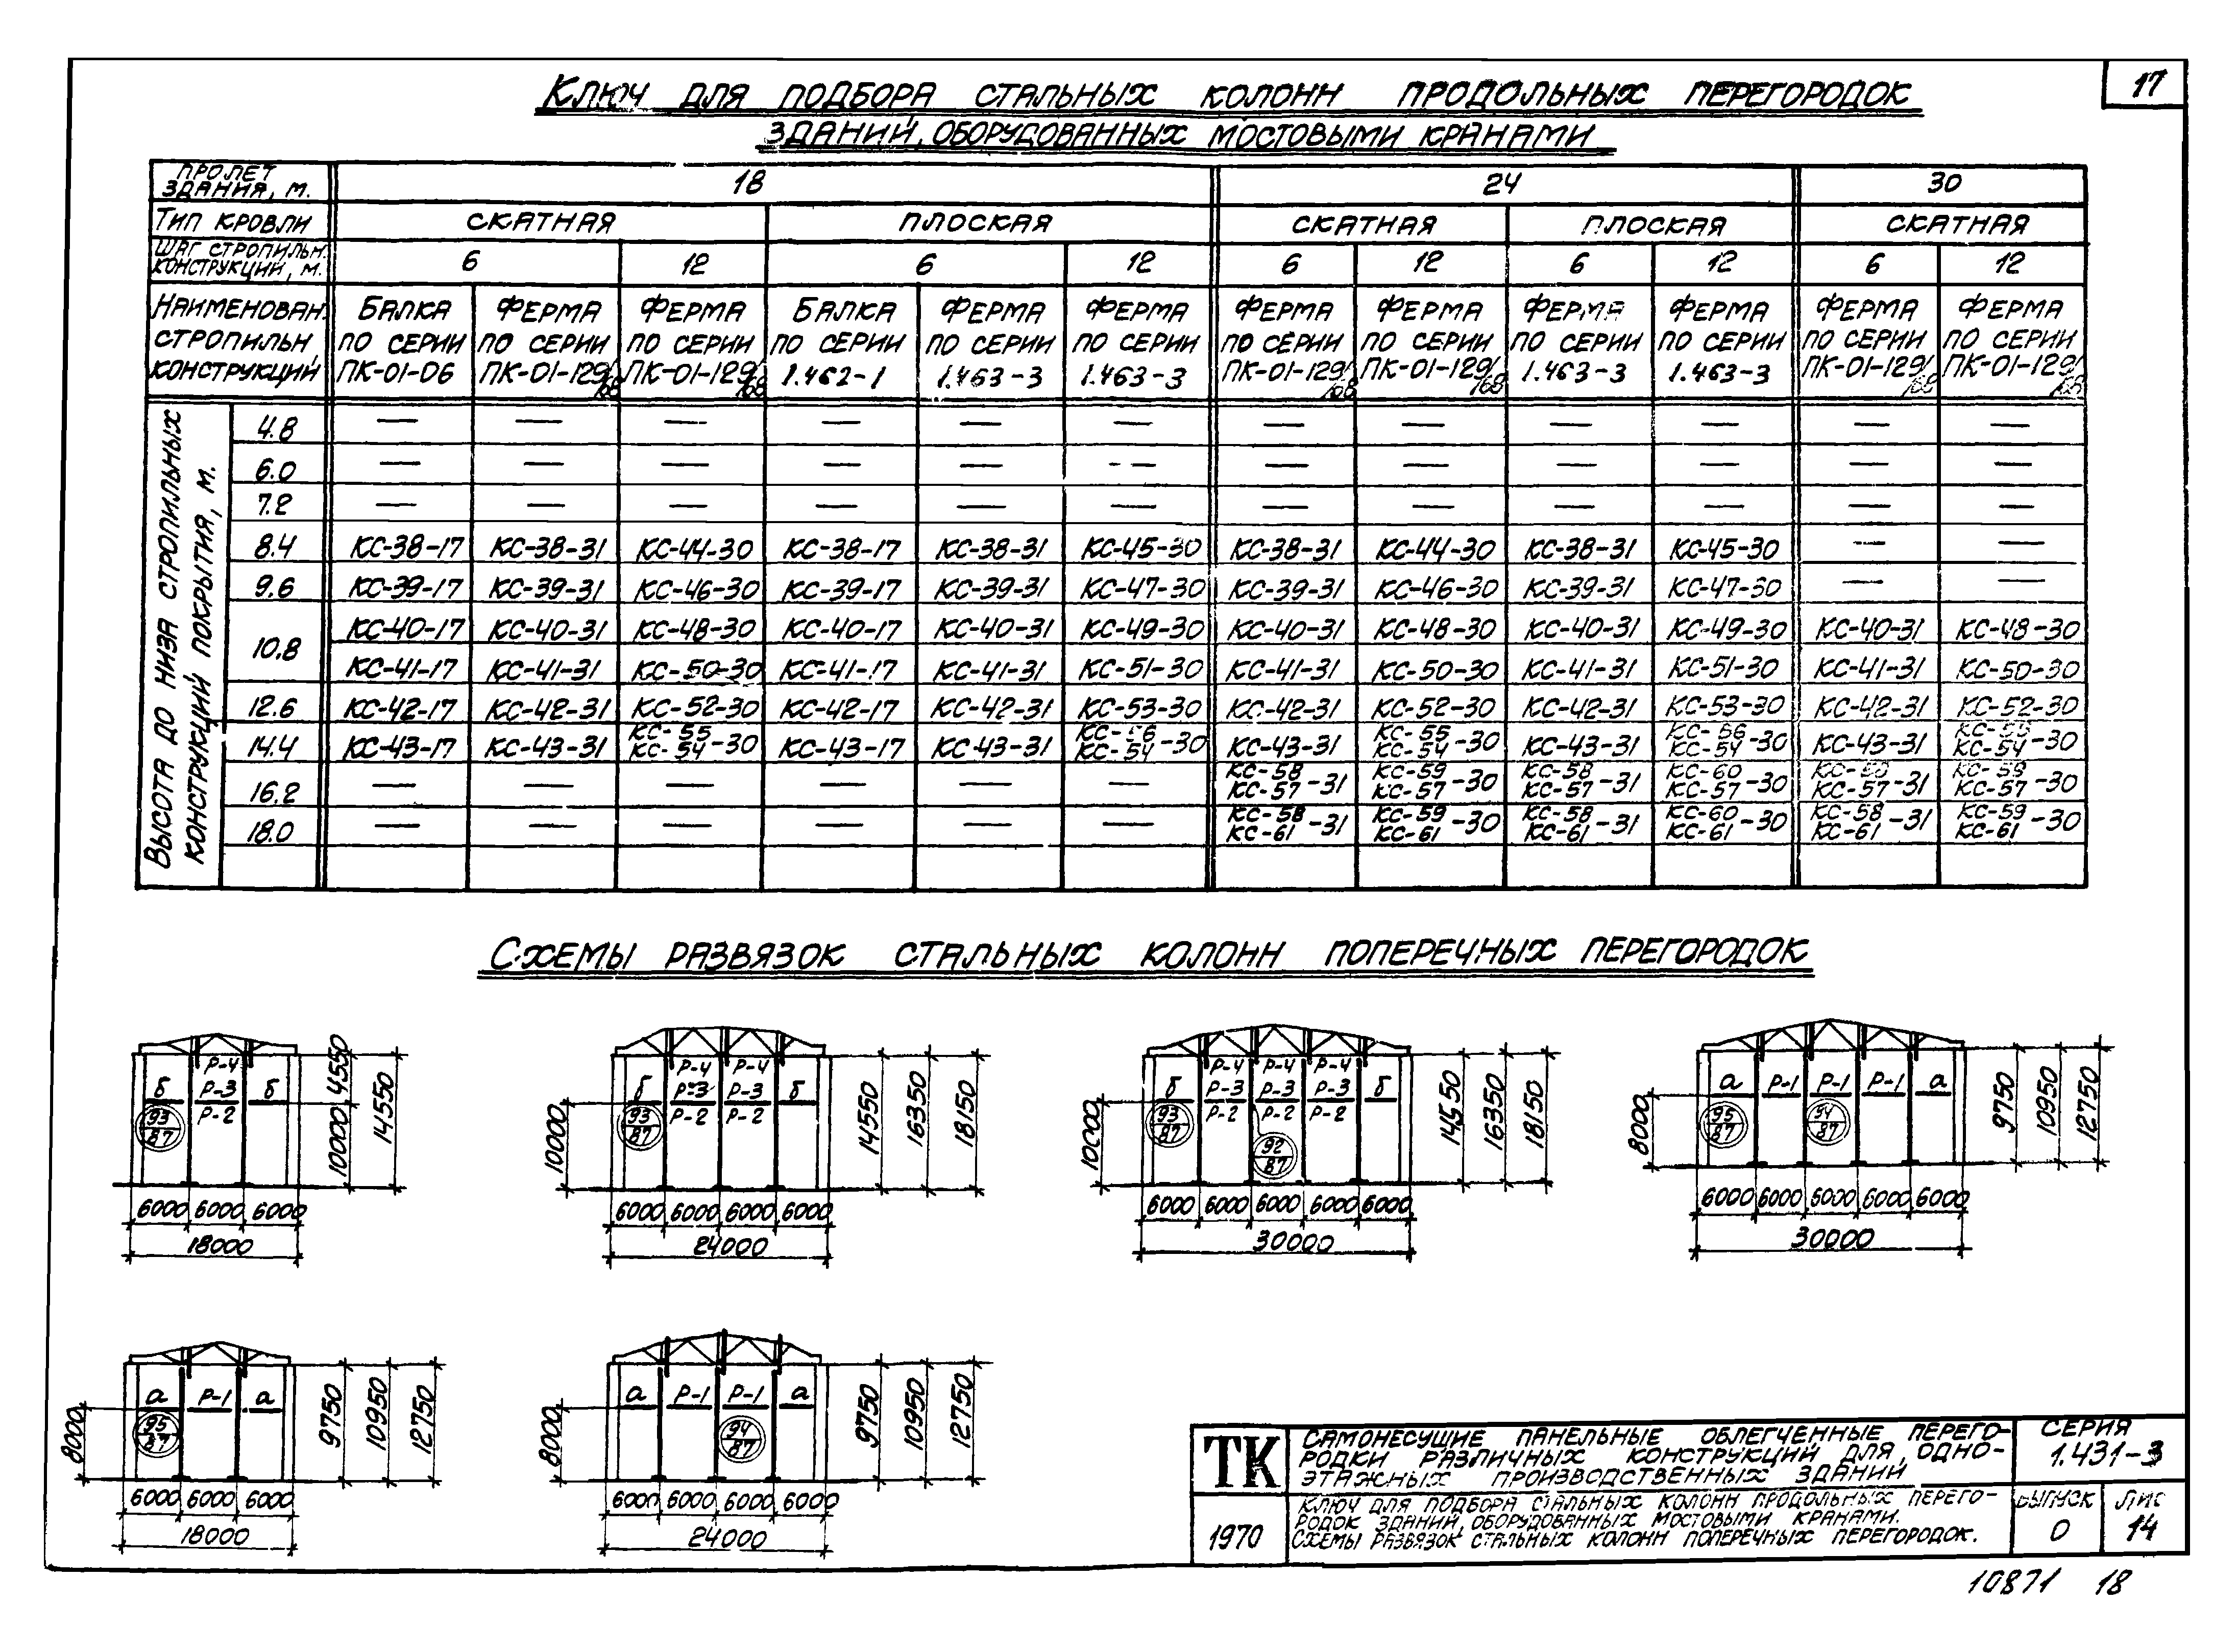 17
КЛЮЧ ДЛЯ ПОДБОРА СТАЛЬНЫХ КОЛОНН ПРОДОЛЬНЫХ ПЕРЕГОРОДОК
ЗДАНИЙ, ОБОРУДОВАННЫХ МОСТОВЫМИ КРАНАМИ
ПРОЛЕТ ЗДАНИЯ, М. 18 24 30
ТИП КРОВЛИ СКАТНАЯ ПЛОСКАЯ СКАТНАЯ ПЛОСКАЯ СКАТНАЯ
ШАГ СТРОПИЛЬН. КОНСТРУКЦИЙ, М. 6 12 6 12 6 12 6 12 6 12
НАИМЕНОВАН. БАЛКА ФЕРМА ФЕРМА БАЛКА ФЕРМА ФЕРМА ФЕРМА ФЕРМА ФЕРМА ФЕРМА ФЕРМА ФЕРМА
СТРОПИЛЬН ПО СЕРИИ ПО СЕРИИ ПО СЕРИИ ПО СЕРИИ ПО СЕРИИ ПО СЕРИИ ПО СЕРИИ ПО СЕРИИ ПО СЕРИИ ПО СЕРИИ ПО СЕРИИ ПО СЕРИИ
КОНСТРУКЦИЙ ПК-01-06 ПК-01-129/68 ПК-01-129/68 1.462-1 1.463-3 1.463-3 ПК-01-129/68 ПК-01-129/68 1.463-3 1.463-3 ПК-01-129/68 ПК-01-129/68
ВЫСОТА ДО НИЗА СТРОПИЛЬНЫХ
КОНСТРУКЦИЙ ПОКРЫТИЯ, М.
4.8 — — — — — — — — — — — —
6.0 — — — — — — — — — — — —
7.2 — — — — — — — — — — — —
8.4 КС-38-17 КС-38-31 КС-44-30 КС-38-17 КС-38-31 КС-45-30 КС-38-31 КС-44-30 КС-38-31 КС-45-30 — —
9.6 КС-39-17 КС-39-31 КС-46-30 КС-39-17 КС-39-31 КС-47-30 КС-39-31 КС-46-30 КС-39-31 КС-47-30 — —
10.8 КС-40-17 КС-40-31 КС-48-30 КС-40-17 КС-40-31 КС-49-30 КС-40-31 КС-48-30 КС-40-31 КС-49-30 КС-40-31 КС-48-30
КС-41-17 КС-41-31 КС-50-30 КС-41-17 КС-41-31 КС-51-30 КС-41-31 КС-50-30 КС-41-31 КС-51-30 КС-41-31 КС-50-30
12.6 КС-42-17 КС-42-31 КС-52-30 КС-42-17 КС-42-31 КС-53-30 КС-42-31 КС-52-30 КС-42-31 КС-53-30 КС-42-31 КС-52-30
КС-55 КС-56 КС-55 КС-56 КС-55
14.4 КС-43-17 КС-43-31 КС-54-30 КС-43-17 КС-43-31 КС-54-30 КС-43-31 КС-54-30 КС-43-31 КС-54-30 КС-43-31 КС-54-30
КС-58 КС-59 КС-58 КС-60 КС-58 КС-59
16.2 — — — — — — КС-57-31 КС-57-30 КС-57-31 КС-57-30 КС-57-31 КС-57-30
КС-58 КС-59 КС-58 КС-60 КС-58 КС-59
18.0 — — — — — — КС-61-31 КС-61-30 КС-61-31 КС-61-30 КС-61-31 КС-61-30
СХЕМЫ РАЗВЯЗОК СТАЛЬНЫХ КОЛОНН ПОПЕРЕЧНЫХ ПЕРЕГОРОДОК
Р-4
б Р-3 б
Р-2
93/87
10000 4550 14550
6000 6000 6000
18000
Р-4 Р-4
б Р-3 Р-3 б
Р-2 Р-2
93/87
10000 14550 16350 18150
6000 6000 6000 6000
24000
Р-4 Р-4 Р-4
б Р-3 Р-3 Р-3 б
Р-2 Р-2 Р-2
93/87 92/87
10000 14550 16350 18150
6000 6000 6000 6000 6000
30000
а Р-1 Р-1 Р-1 а
95/87 94/87
8000 9750 10950 12750
6000 6000 6000 6000 6000
30000
а Р-1 а
95/87
8000 9750 10950 12750
6000 6000 6000
18000
а Р-1 Р-1 а
94/87
8000 9750 10950 12750
6000 6000 6000 6000
24000
ТК
САМОНЕСУЩИЕ ПАНЕЛЬНЫЕ ОБЛЕГЧЕННЫЕ ПЕРЕГО-
РОДКИ РАЗЛИЧНЫХ КОНСТРУКЦИЙ ДЛЯ ОДНО-
ЭТАЖНЫХ ПРОИЗВОДСТВЕННЫХ ЗДАНИЙ
СЕРИЯ
1.431-3
1970
КЛЮЧ ДЛЯ ПОДБОРА СТАЛЬНЫХ КОЛОНН ПРОДОЛЬНЫХ ПЕРЕГО-
РОДОК ЗДАНИЙ, ОБОРУДОВАННЫХ МОСТОВЫМИ КРАНАМИ.
СХЕМЫ РАЗВЯЗОК СТАЛЬНЫХ КОЛОНН ПОПЕРЕЧНЫХ ПЕРЕГОРОДОК.
ВЫПУСК
0
ЛИС
14
10871 18